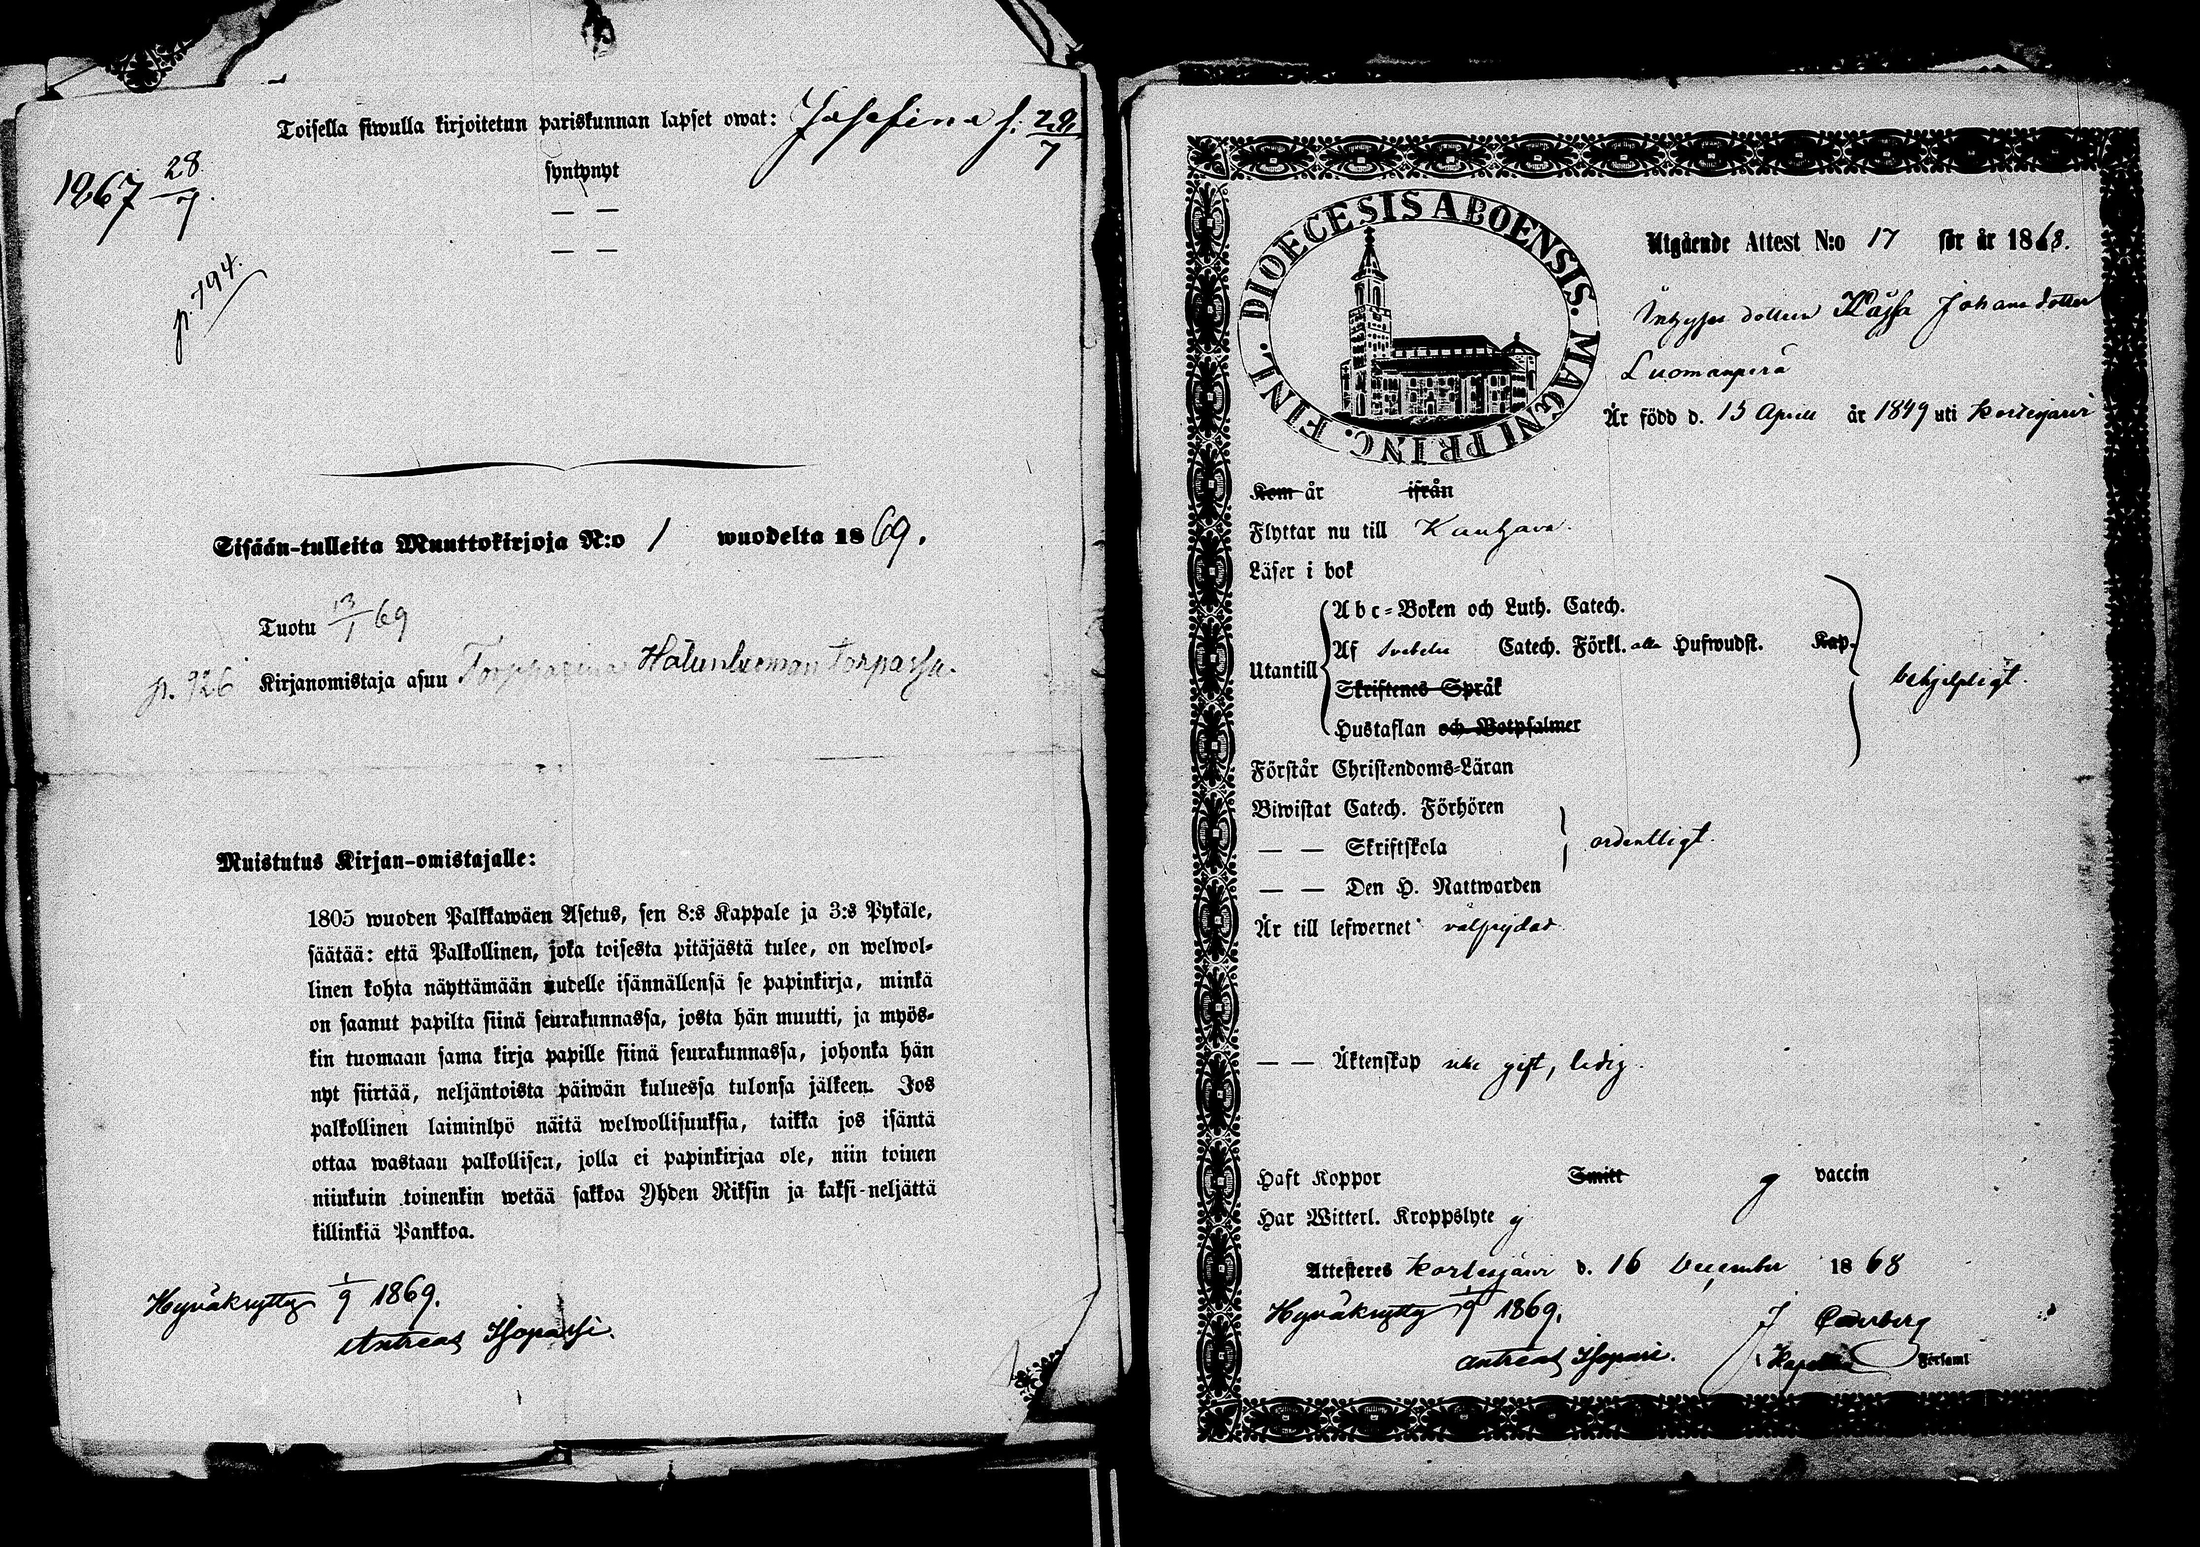 Toisella siwulla kirjoitetun pariskunnan lapset owat: Josefina f. 29/7
syntynyt
1867 28/7.
— —
— —
p. 794.
Sisään-tulleita Muuttokirjoja N:o 1 wuodelta 1869.
Tuotu 13/1 69
p. 926 Kirjanomistaja asuu Torpparina torpassa.
Muistutus Kirjan-omistajalle:
1805 wuoden Palkkawäen Asetus, sen 8:s Kappale ja 3:s Pykäle,
säätää: että Palkollinen, joka toisesta pitäjästä tulee, on welwol-
linen kohta näyttämään uudelle isännällensä se papinkirja, minkä
on saanut papilta siinä seurakunnassa, josta hän muutti, ja myös-
kin tuomaan sama kirja papille siinä seurakunnassa, johonka hän
nyt siirtää, neljäntoista päiwän kuluessa tulonsa jälkeen. Jos
palkollinen laiminlyö näitä welwollisuuksia, taikka jos isäntä
ottaa wastaan palkollisen, jolla ei papinkirjaa ole, niin toinen
niinkuin toinenkin wetää sakkoa Yhden Riksin ja kaksi-neljättä
killinkiä Pankkoa.
Hyväksytty 1/9 1869.
Antreas Isopassi.
DIOECESIS ABOENSIS. MAGNI PRINC. FINL.
Utgående Attest N:o 17 för år 1868.
Inhyses dottern Kajsa Johansdotter
Luomanperä
Är född d. 15 April år 1849 uti Kortesjärvi
Kom år ifrån
Flyttar nu till Kauhava.
Läser i bok
Utantill
Abc-Boken och Luth. Catech.
Af Svebelii Catech. Förkl. alla Hufwudst. Kap.
Skriftenes Språk
Hustaflan och Botpsalmer
behjelpligt.
Förstår Christendoms-Läran
Biwistat Catech. Förhören
— — Skriftskola
ordentligt.
— — Den H. Nattwarden
Är till lefwernet välfrejdad.
— — Äktenskap icke gift, ledig.
Haft Koppor Smitt g vaccin
Har Witterl. Kroppslyte ej
Attesteres Kortesjärvi d. 16 December 1868
Hyväksytty 1/9 1869.
J Cederberg
Antreas Isopassi.
Kapellan Församl